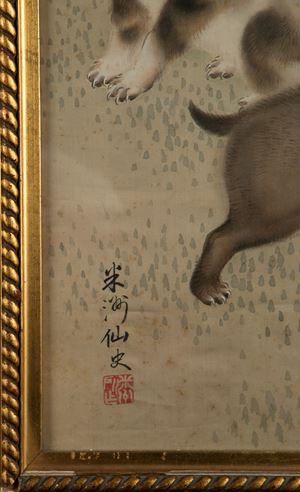 米洲仙史